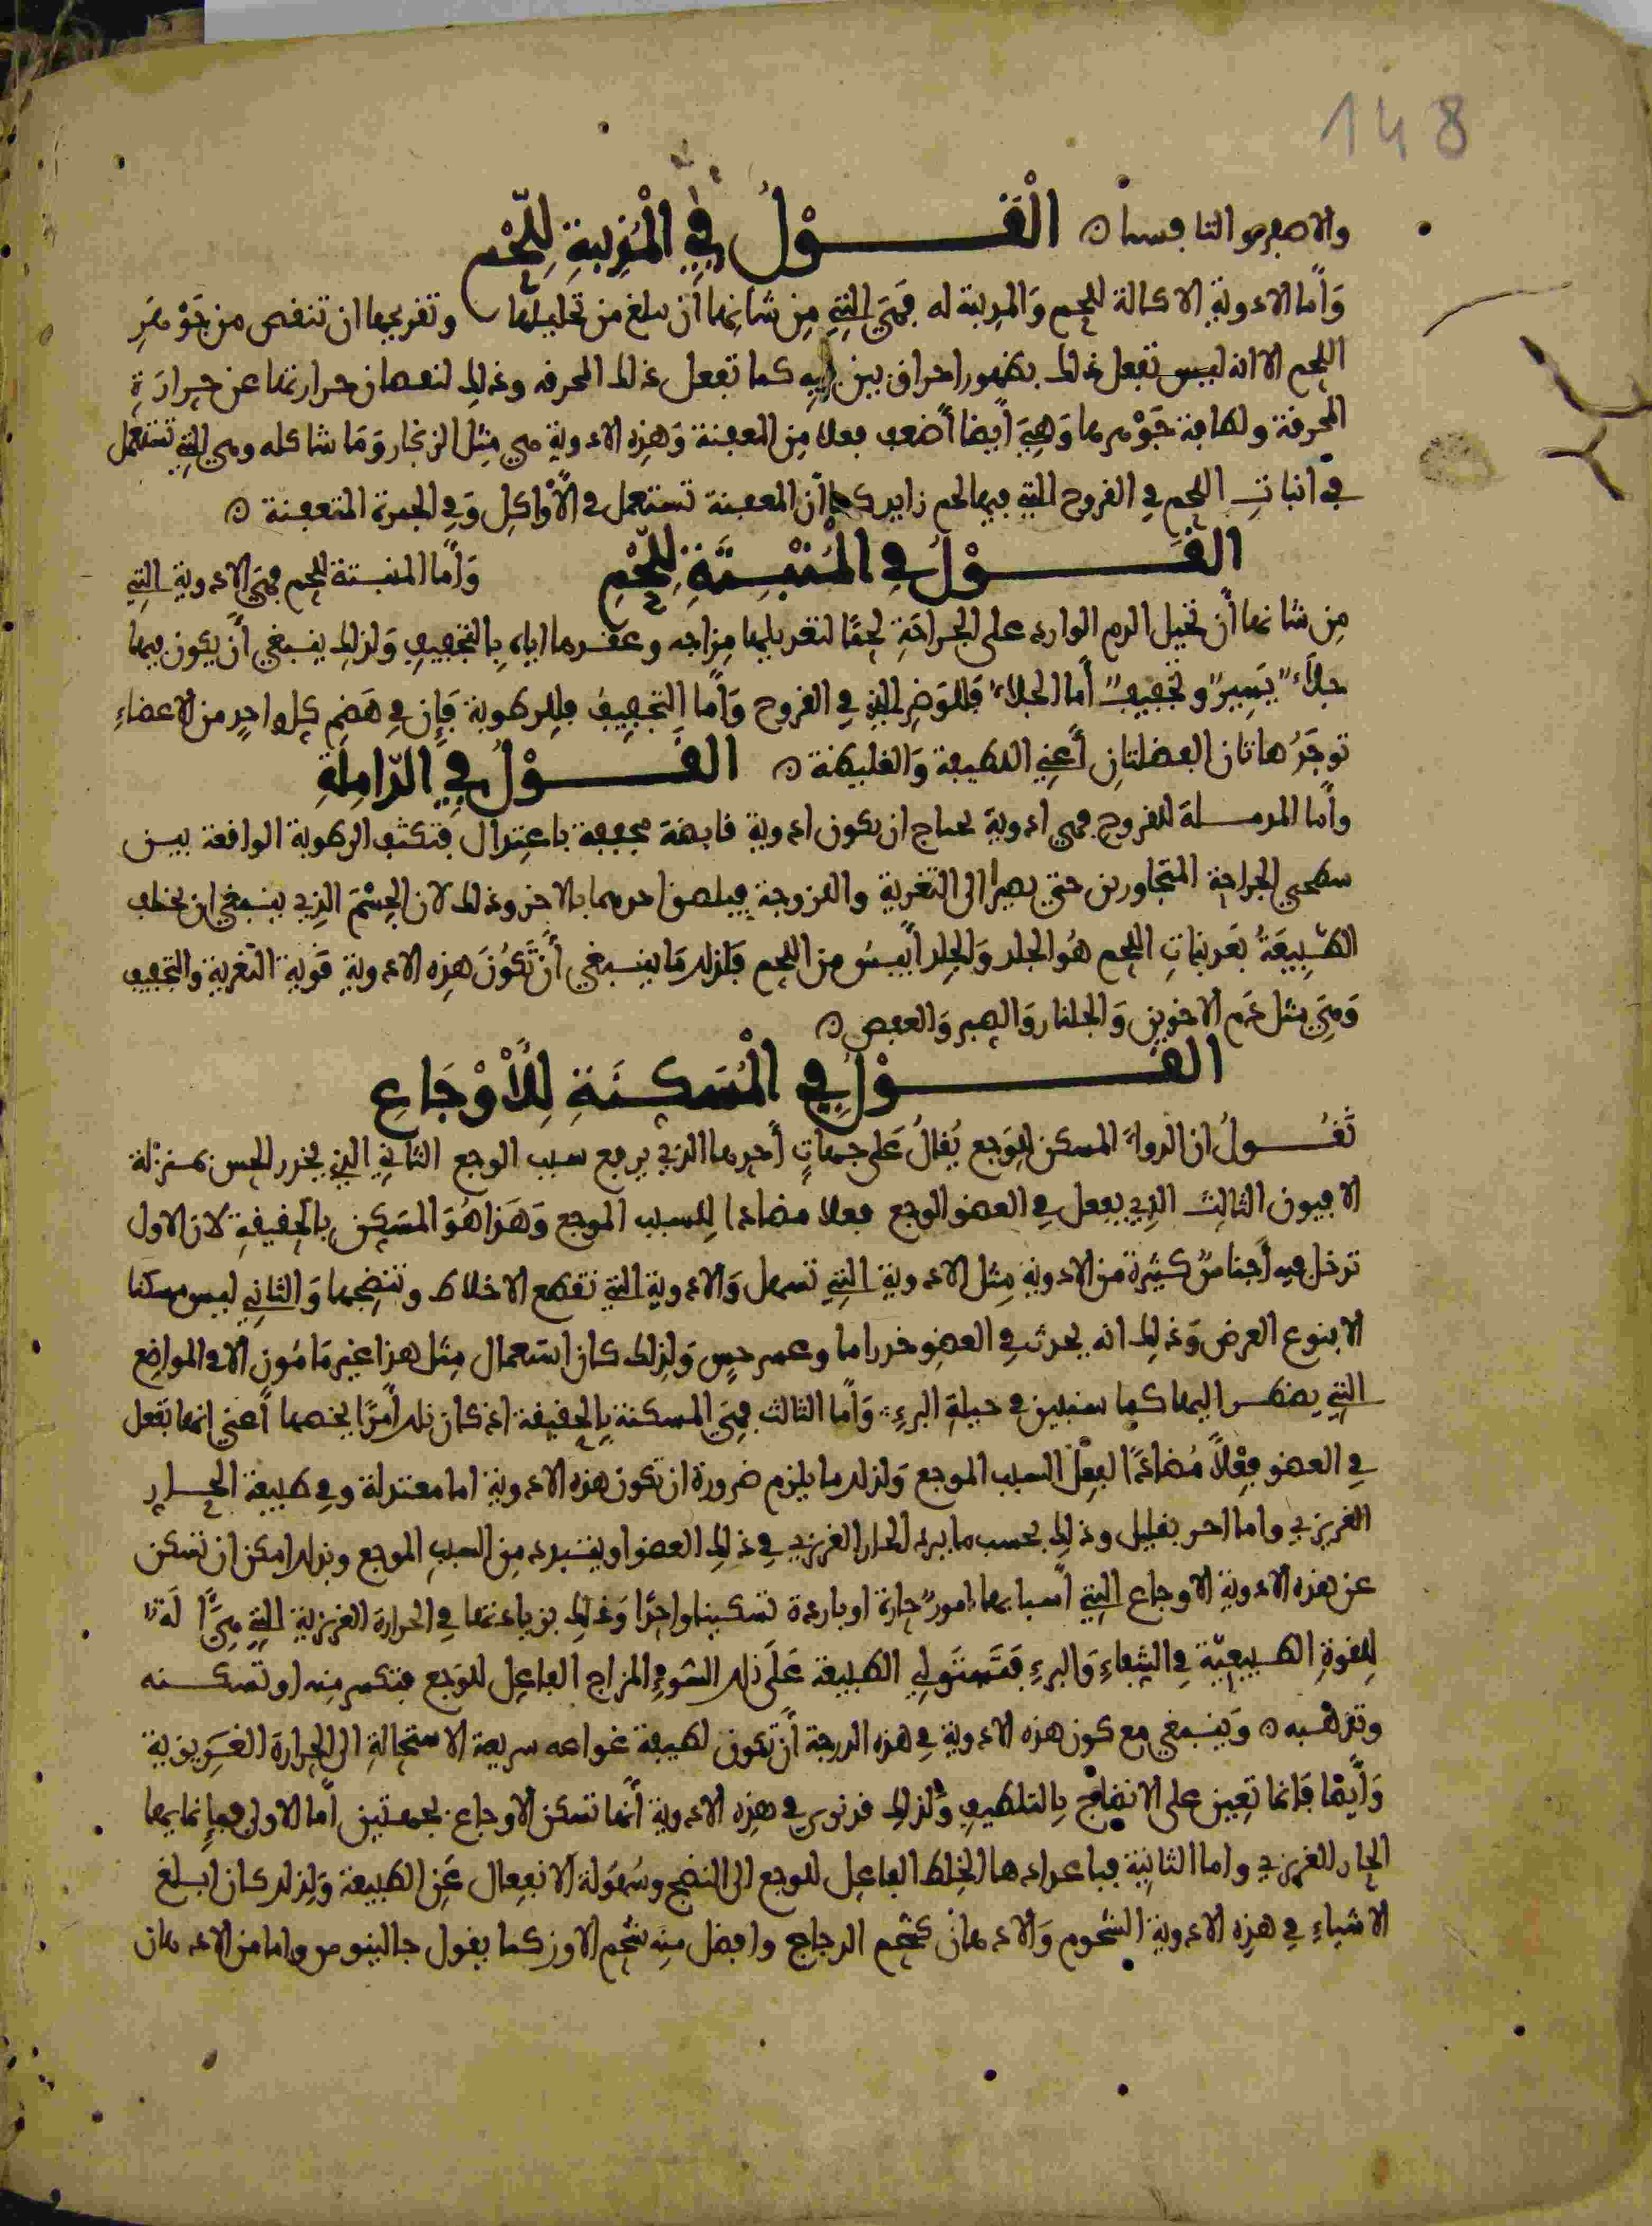 148
والاصفر هو التافسيا ۞ الْقَوْلُ فِي الْمُذِيبَةِ لِلَّحْم
وَأما الادوية الاكالة للحم وَالمذيبة له فَهِيَ التي مِن شانِها أن يبلغ من تحليلها وتفريحها ان تنقص من جَوْهَرِ
اللحم الا انه ليس تفعل ذلك بظهور احراق بين فيه كما تفعل ذلك المحرقه وذلك لنقصان حرارتها عن حرارَةِ
المحرقة ولطافة جَوْهرها وَهِيَ أيضا أضعف فعلا مِن المعفنة وَهذِه الادوية هي مِثل الزنجار وَمَا شاكله وهي التي تستعمل
في انبات اللحم فِي القروح التي فيها لحم زايد كما أن المعفنة تستعمل في الأَوَاكِل وَفِي الجمرة المتعفنة ۞
القَوْلُ فِي المُنْبِتَةِ لِلَّحْمِ وَأمَّا المنبتة للحم فهي الادوية التي
مِن شانها أن تحيل الدم الوارد على الجراحَةِ لحمًا لتعديلها مِزاجه وعقدها اياه بِالتجفيف وَلذلك ينبغي أن يكون فيها
جلاَءٌ يَسِيرٌ وتجفيفٌ أما الجلاءُ فَللوَضرِ الذي في القروح وَأما التجفيف فللرطوبة فَإِن في هَضم كل واحدٍ من الاعضاءِ
توجَدُ هاتان الفضلتانِ أَعني اللطيفة وَالغليظة ۞ القَوْلُ فِي الدّامِلَةِ
وأما المدملة للقروح فهي ادوية يحتاج ان يكون ادوية قابضة مجففة باعتدال فتكثف الرطوبة الواقعة بين
سطحي الجراحة المتجاورين حتى يصيرا الى التغرية واللزوجة فيلصق احدهما بالاخر وذلك لان الجِسْمَ الذي ينبغي ان يخلف
الطَّبِيعَةُ بَعد نباتِ اللحم هُوَ الجلد وَالجلد أيبسُ مِن اللحم فَلذلك مَا ينبغي أَنْ تَكُونَ هذِه الادوية قَوية التغرية والتجفيف
وَهِيَ مثل دَم الاخوين وَالجلنار وَالصبر وَالعفص ۞
القَوْلُ فِي الْمُسَكِنَةِ لِلأَوْجَاعِ
نَقُولُ ان الدواءَ المسكن للوَجع يُقالُ عَلى جهاتٍ أحدها الذي يرفع سبب الوجع الثاني الذي يخدر الحس بمنزلة
الافيون الثالث الذي يفعل في العضو الوجع فعلا مضادا للسبب الموجع وَهَذا هُوَ المسَكِن بِالحقيقةِ لان الاول
تدخل فيه أجناسٌ كثيرة من الادوية مِثل الادوية التي تسهل وَالادوية التي تقطع الاخلاط وتنضجها وَالثاني ليس مسكنا
الا بنوع العرض وَذلك انه يحدث في العضو خدرا ما وعسر حسٍ وَلذلك كان استعمال مِثل هذا غير مَامُون الا في المواضِع
التي يضطر اليها كما سنبين في حيلة البرءِ وَأما الثالث فهي المسكنة بِالحقيقة اذ كان ذلك أمرًا يخصها أعني انها تفعل
في العضو فِعْلاً مُضادًا لفِعْل السبب الموجع وَلذلك ما يلزم ضرورة ان تكون هذه الادوية اما معتدلة وفي طبيعة الحار
الغريزي واما احر بقليل وذلك بحسب ما يبرد الحار الغريزي في ذلك العضو او يتبدد مِن السبب الموجع وبذلك امكن ان تسكن
عن هذه الادوية الاوجاع التي أسبابها امورٌ حارة او باردة تسكينا واحدًا وَذلك بزيادتها في الحرارة الغريزية التي هِيَ آلَةٌ
لِلقوة الطبيعِيّة في الشِفاءِ وَالبرءِ فَتَستَولي الطبيعة عَلَى ذلك السُّوءِ المزاج الفاعِل للوَجع فتكسر مِنه او تسكنه
وتذهبه ۞ وَينبغي مع كون هذه الادوية في هذه الدرجة أن تكون لطيفة غواصه سريعة الاستحالة الى الحرارة الغَرِيزية
وَأَيضًا فَانما تعِين على الانضاج بِالتلطيف وَلذلك فد نرى في هذِه الادوية أنها تسكن الاوجاع بجهتين أما الاولى فبإنمايها
الحار الغريزي واما الثانية فباعدادها الخِلط الفاعِل للوجع الى النضج وسُهُولة الانفِعال عَن الطبيعة وَلِذلك كان ابلغ
الاشياءِ في هذِه الادوية الشحوم وَالادهان كشحم الدجاج وافضل مِنه شحم الاوز كما يقول جالينوس واما من الادهان